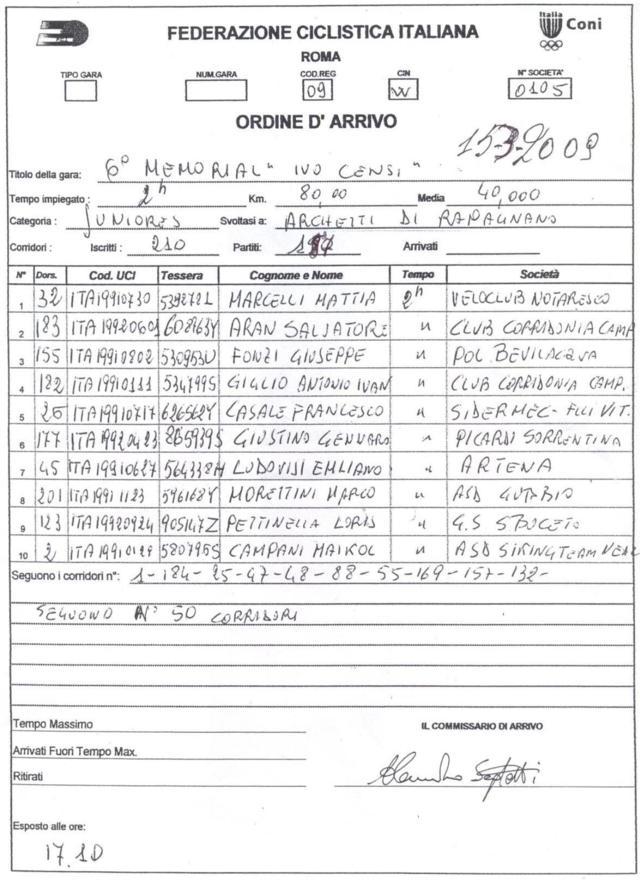 FEDERAZIONE CICLISTICA ITALIANA
Italia
Coni
ROMA
TIPO GARA NUM.GARA COD.REG CIN N° SOCIETA'
09 W 0105
ORDINE D' ARRIVO
15-3-2009
Titolo della gara: 6° MEMORIAL " IVO CENSI "
Tempo impiegato : 2h Km. 80,00 Media 40,000
Categoria : JUNIORES Svoltasi a: ARCHETTI DI RAPAGNANO
Corridori : Iscritti : 210 Partiti: Arrivati
N° Dors. Cod. UCI Tessera Cognome e Nome Tempo Società
1 32 ITA19910730 MARCELLI MATTIA 2h VELOCLUB NOTARESCO
2 183 ITA19920601 ARAN SALVATORE " CLUB CORRIDONIA CAMP
3 155 ITA19910802 530953U FONZI GIUSEPPE " POL. BEVILACQUA
4 182 ITA19910111 534799S GIGLIO ANTONIO IVAN " CLUB CORRIDONIA CAMP.
5 26 ITA19910717 626562Y CASALE FRANCESCO " SIDERMEC- F.LLI VIT.
6 177 ITA19920423 865939S GIUSTINO GENNARO " PICARDI SORRENTINA
7 45 ITA19910627 564338H LUDOVISI EMILIANO " ARTENA
8 201 ITA19911123 596168Y MORETTINI MARCO " ASD GUBBIO
9 123 ITA19920924 905147Z PETTINELLA LORIS " G.S
10 2 ITA19910129 580795S CAMPANI MAIKOL " ASD
Seguono i corridori n°: 1-184-25-47-48-88-55-169-157-132-
SEGUONO N° 50 CORRIDORI
Tempo Massimo IL COMMISSARIO DI ARRIVO
Arrivati Fuori Tempo Max.
Ritirati
Esposto alle ore:
17.10